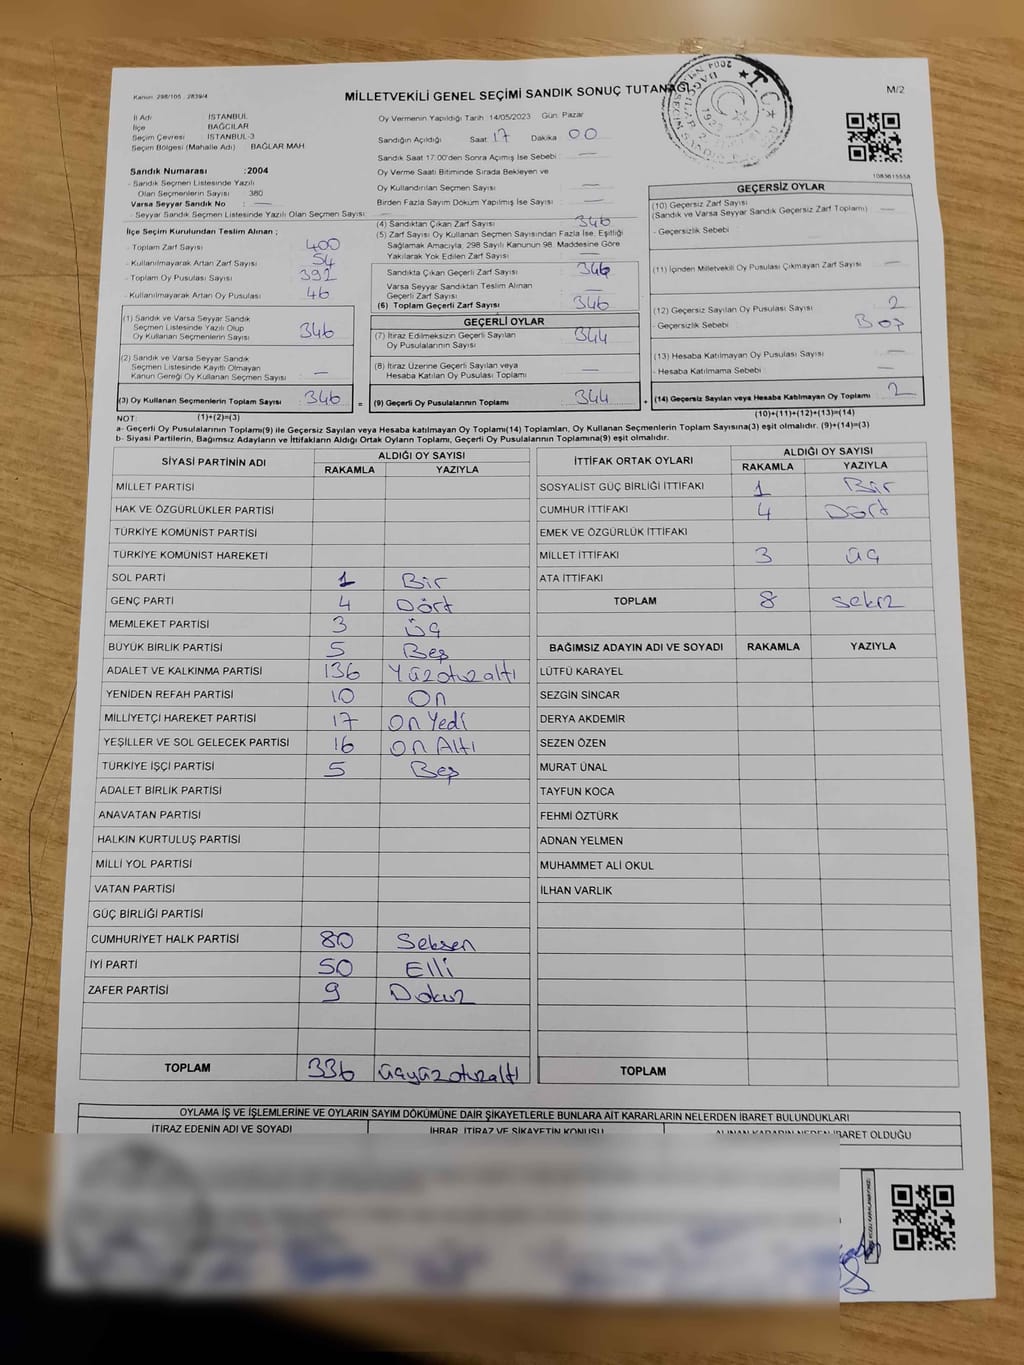 Kanun: 298/105 , 2839/4
MİLLETVEKİLİ GENEL SEÇİMİ SANDIK SONUÇ TUTANAĞI
M/2
İl Adı İSTANBUL
İlçe BAĞCILAR
Seçim Çevresi : İSTANBUL-3
Seçim Bölgesi (Mahalle Adı) : BAĞLAR MAH.
Oy Vermenin Yapıldığı Tarih 14/05/2023 Gün: Pazar
Sandığın Açıldığı Saat 17 Dakika 00
Sandık Saat 17:00'den Sonra Açılmış İse Sebebi : —
Oy Verme Saati Bitiminde Sırada Bekleyen ve
Oy Kullandırılan Seçmen Sayısı —
Birden Fazla Sayım Döküm Yapılmış İse Sayısı : —
1083615558
Sandık Numarası :2004
- Sandık Seçmen Listesinde Yazılı
Olan Seçmenlerin Sayısı : 380
Varsa Seyyar Sandık No : —
- Seyyar Sandık Seçmen Listesinde Yazılı Olan Seçmen Sayısı: —
İlçe Seçim Kurulundan Teslim Alınan ;
- Toplam Zarf Sayısı : 400
- Kullanılmayarak Artan Zarf Sayısı : 54
- Toplam Oy Pusulası Sayısı : 392
- Kullanılmayarak Artan Oy Pusulası : 46
(1) Sandık ve Varsa Seyyar Sandık
Seçmen Listesinde Yazılı Olup
Oy Kullanan Seçmenlerin Sayısı : 346
(2) Sandık ve Varsa Seyyar Sandık
Seçmen Listesinde Kayıtlı Olmayan
Kanun Gereği Oy Kullanan Seçmen Sayısı : —
(3) Oy Kullanan Seçmenlerin Toplam Sayısı : 346
(4) Sandıktan Çıkan Zarf Sayısı : 346
(5) Zarf Sayısı Oy Kullanan Seçmen Sayısından Fazla İse, Eşitliği
Sağlamak Amacıyla, 298 Sayılı Kanunun 98. Maddesine Göre
Yakılarak Yok Edilen Zarf Sayısı : —
Sandıkta Çıkan Geçerli Zarf Sayısı : 346
Varsa Seyyar Sandıktan Teslim Alınan
Geçerli Zarf Sayısı : —
(6) Toplam Geçerli Zarf Sayısı : 346
GEÇERLİ OYLAR
(7) İtiraz Edilmeksizin Geçerli Sayılan
Oy Pusulalarının Sayısı : 344
(8) İtiraz Üzerine Geçerli Sayılan veya
Hesaba Katılan Oy Pusulası Toplamı : —
= (9) Geçerli Oy Pusulalarının Toplamı : 344 +
GEÇERSİZ OYLAR
(10) Geçersiz Zarf Sayısı
(Sandık ve Varsa Seyyar Sandık Geçersiz Zarf Toplamı) : —
- Geçersizlik Sebebi : —
(11) İçinden Milletvekili Oy Pusulası Çıkmayan Zarf Sayısı : —
(12) Geçersiz Sayılan Oy Pusulası Sayısı : 2
- Geçersizlik Sebebi : Boş
(13) Hesaba Katılmayan Oy Pusulası Sayısı : —
- Hesaba Katılmama Sebebi : —
(14) Geçersiz Sayılan veya Hesaba Katılmayan Oy Toplamı : 2
NOT: (1)+(2)=(3)
(10)+(11)+(12)+(13)=(14)
a- Geçerli Oy Pusulalarının Toplamı(9) ile Geçersiz Sayılan veya Hesaba katılmayan Oy Toplamı(14) Toplamları, Oy Kullanan Seçmenlerin Toplam Sayısına(3) eşit olmalıdır. (9)+(14)=(3)
b- Siyasi Partilerin, Bağımsız Adayların ve İttifakların Aldığı Ortak Oyların Toplamı, Geçerli Oy Pusulalarının Toplamına(9) eşit olmalıdır.
SİYASİ PARTİNİN ADI ALDIĞI OY SAYISI
RAKAMLA YAZIYLA
MİLLET PARTİSİ
HAK VE ÖZGÜRLÜKLER PARTİSİ
TÜRKİYE KOMÜNİST PARTİSİ
TÜRKİYE KOMÜNİST HAREKETİ
SOL PARTİ 1 Bir
GENÇ PARTİ 4 Dört
MEMLEKET PARTİSİ 3 Üç
BÜYÜK BİRLİK PARTİSİ 5 Beş
ADALET VE KALKINMA PARTİSİ 136 Yüzotuzaltı
YENİDEN REFAH PARTİSİ 10 On
MİLLİYETÇİ HAREKET PARTİSİ 17 On Yedi
YEŞİLLER VE SOL GELECEK PARTİSİ 16 On Altı
TÜRKİYE İŞÇİ PARTİSİ 5 Beş
ADALET BİRLİK PARTİSİ
ANAVATAN PARTİSİ
HALKIN KURTULUŞ PARTİSİ
MİLLİ YOL PARTİSİ
VATAN PARTİSİ
GÜÇ BİRLİĞİ PARTİSİ
CUMHURİYET HALK PARTİSİ 80 Seksen
İYİ PARTİ 50 Elli
ZAFER PARTİSİ 9 Dokuz
TOPLAM 336 üçyüzotuzaltı
İTTİFAK ORTAK OYLARI ALDIĞI OY SAYISI
RAKAMLA YAZIYLA
SOSYALİST GÜÇ BİRLİĞİ İTTİFAKI 1 Bir
CUMHUR İTTİFAKI 4 Dört
EMEK VE ÖZGÜRLÜK İTTİFAKI
MİLLET İTTİFAKI 3 üç
ATA İTTİFAKI
TOPLAM 8 sekiz
BAĞIMSIZ ADAYIN ADI VE SOYADI RAKAMLA YAZIYLA
LÜTFÜ KARAYEL
SEZGİN SİNCAR
DERYA AKDEMİR
SEZEN ÖZEN
MURAT ÜNAL
TAYFUN KOCA
FEHMİ ÖZTÜRK
ADNAN YELMEN
MUHAMMET ALİ OKUL
İLHAN VARLIK
TOPLAM
OYLAMA İŞ VE İŞLEMLERİNE VE OYLARIN SAYIM DÖKÜMÜNE DAİR ŞİKAYETLERLE BUNLARA AİT KARARLARIN NELERDEN İBARET BULUNDUKLARI
İTİRAZ EDENİN ADI VE SOYADI İHBAR, İTİRAZ VE ŞİKAYETİN KONUSU ALINAN KARARIN NEDEN İBARET OLDUĞU